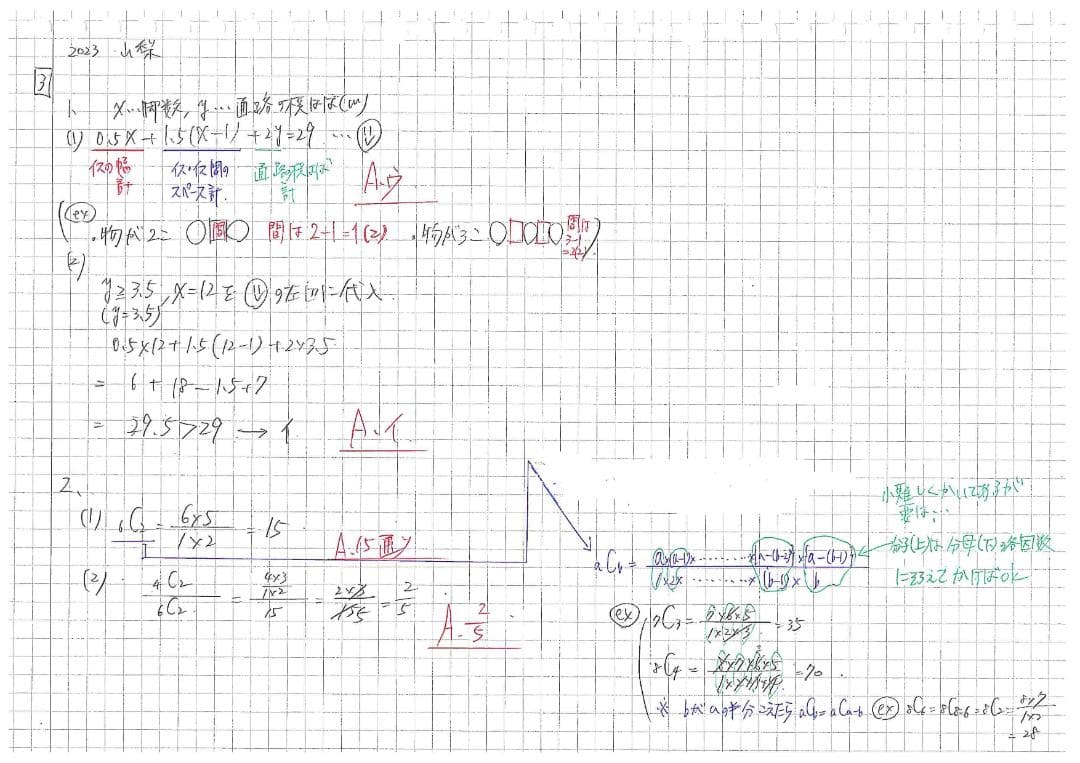 2023 山梨
3
1. x…脚数, y…通路の横はば(m)
(1) 0.5x+1.5(x-1)+2y=29 …
イスの幅計
イス・イス間のスペース計.
通路の横はば計
A.ウ
(ex)
・物が2こ ○間○ 間は2-1=1(こ) ・物が3こ ○□○□○ 間は3-1=2(こ).
(2)
y≧3.5, x=12を の左辺に代入.
(y=3.5)
0.5×12+1.5(12-1)+2×3.5
= 6+18-1.5+7
= 29.5>29 → イ
A.イ
2.
(1) 6C2=6×5/1×2=15
A.15通り
(2) 4C2/6C2=(4×3/1×2)/15=2×3/155=2/5
A.2/5
小難しくかいてあるが
要は…
分子(上)は分母(下)の各因数
に揃えてかければok
aCb=a×(a-1)×………×{a-(b-2)}×{a-(b-1)}/1×2×………×(b-1)×b
(ex) 7C3=7×6×5/1×2×3=35
8C4=8×7×6×5/1×2×3×4=70.
※ bがaの半分こえたら aCb=aCa-b (ex) 8C6=8C8-6=8C2=8×7/1×2
=28